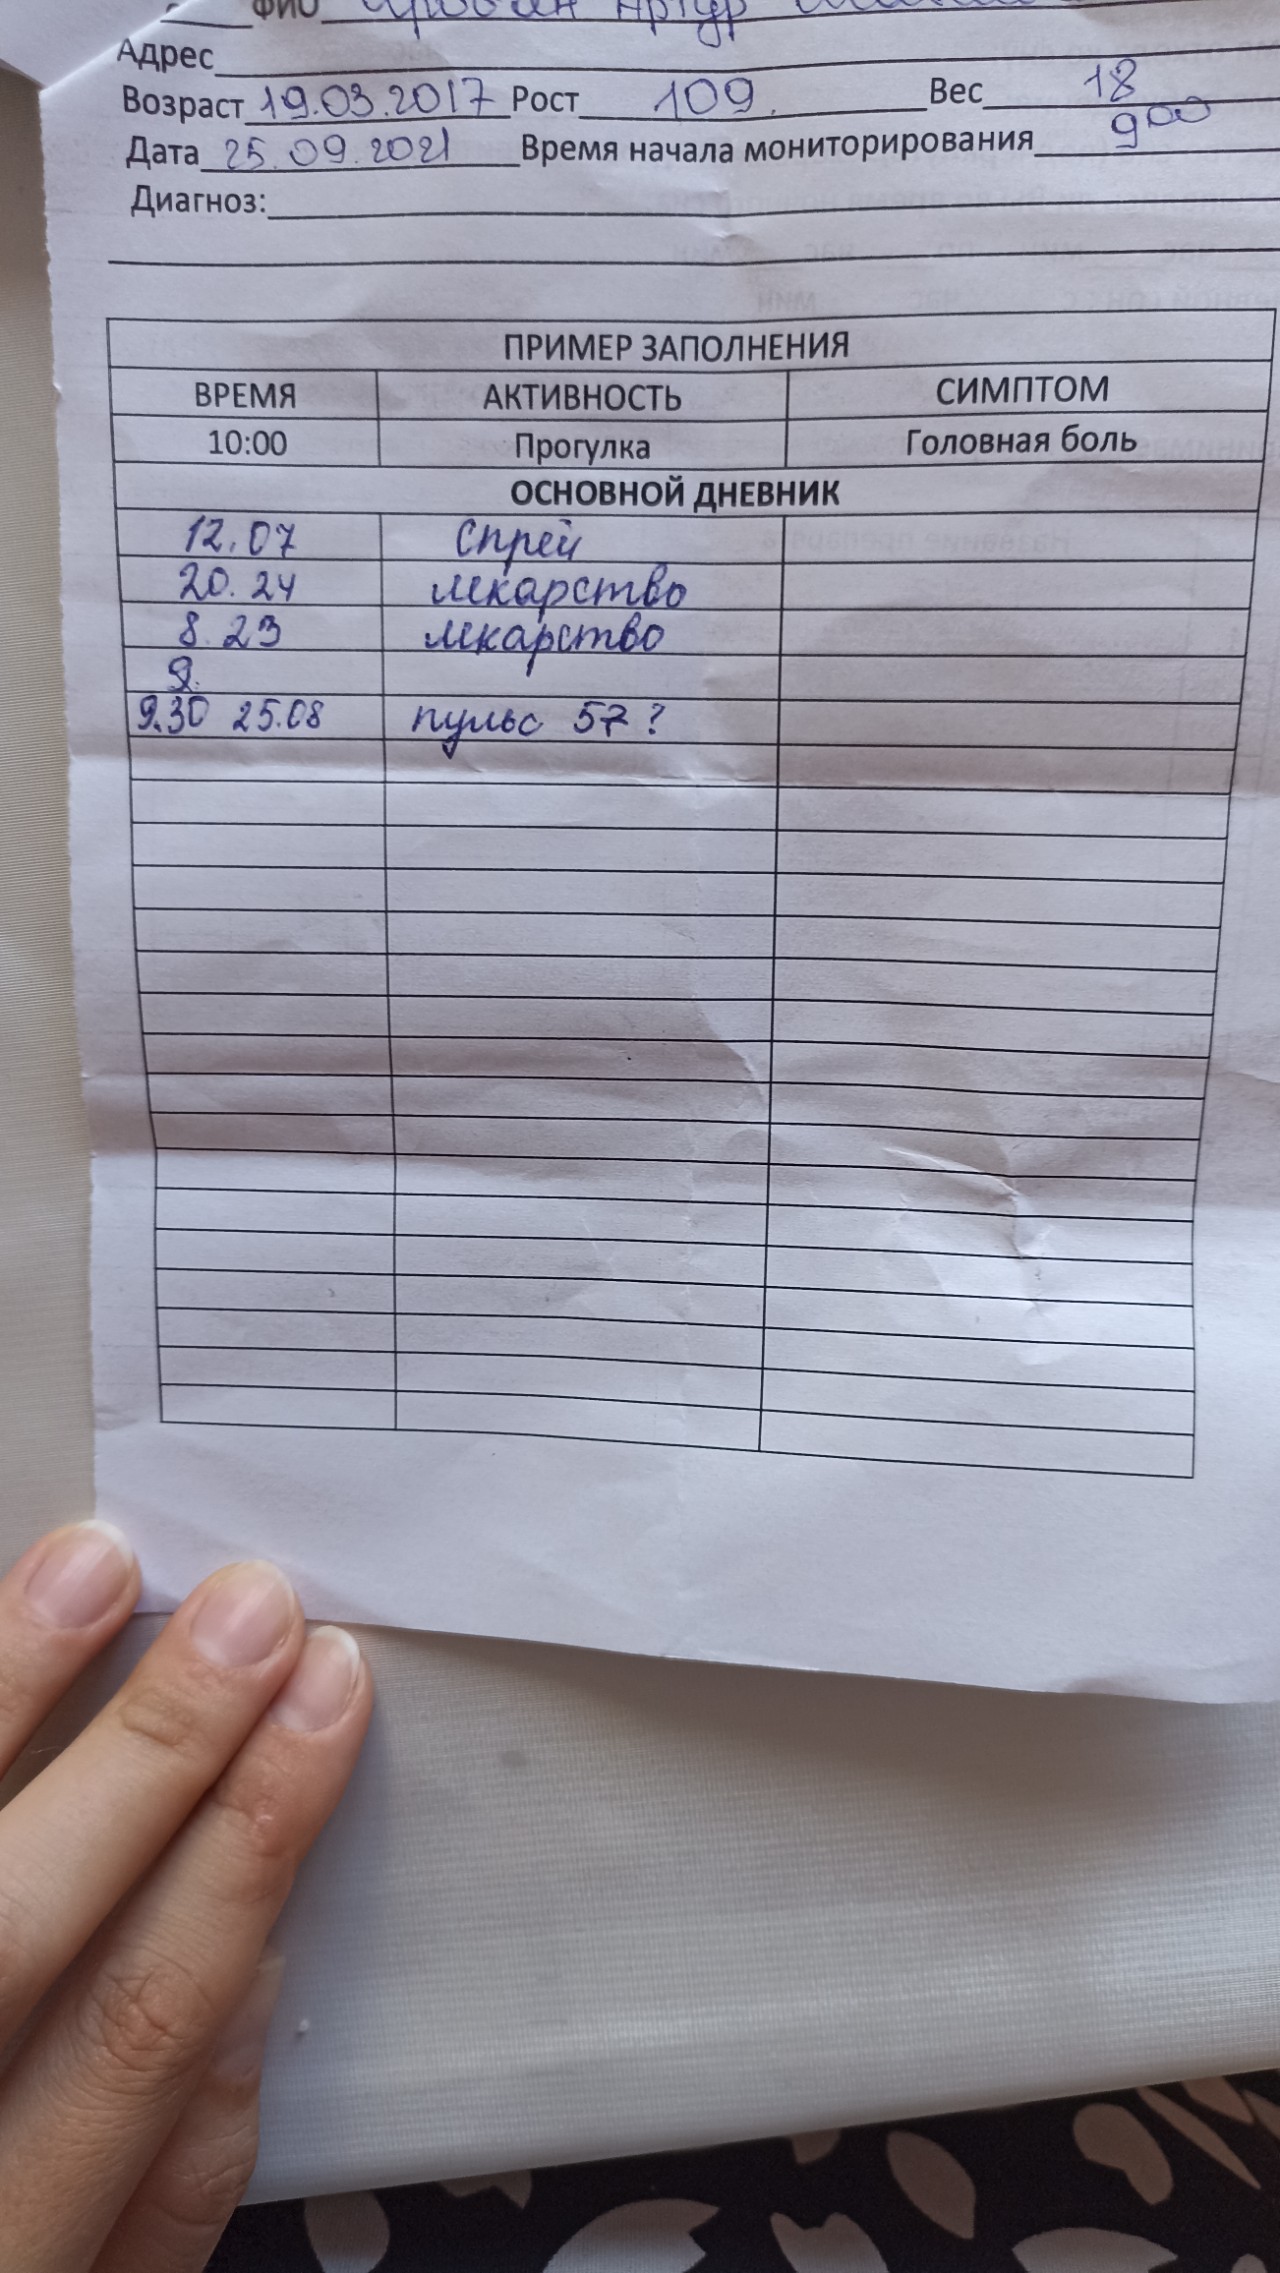 ФИО Артур
Адрес
Возраст 19.03.2017 Рост 109. Вес 18
Дата 25.09.2021 Время начала мониторирования 9 00
Диагноз:
ПРИМЕР ЗАПОЛНЕНИЯ
ВРЕМЯ АКТИВНОСТЬ СИМПТОМ
10:00 Прогулка Головная боль
ОСНОВНОЙ ДНЕВНИК
12.07 Спрей
20.24 лекарство
8.23 лекарство
9.
9.30 25.08 пульс 57?